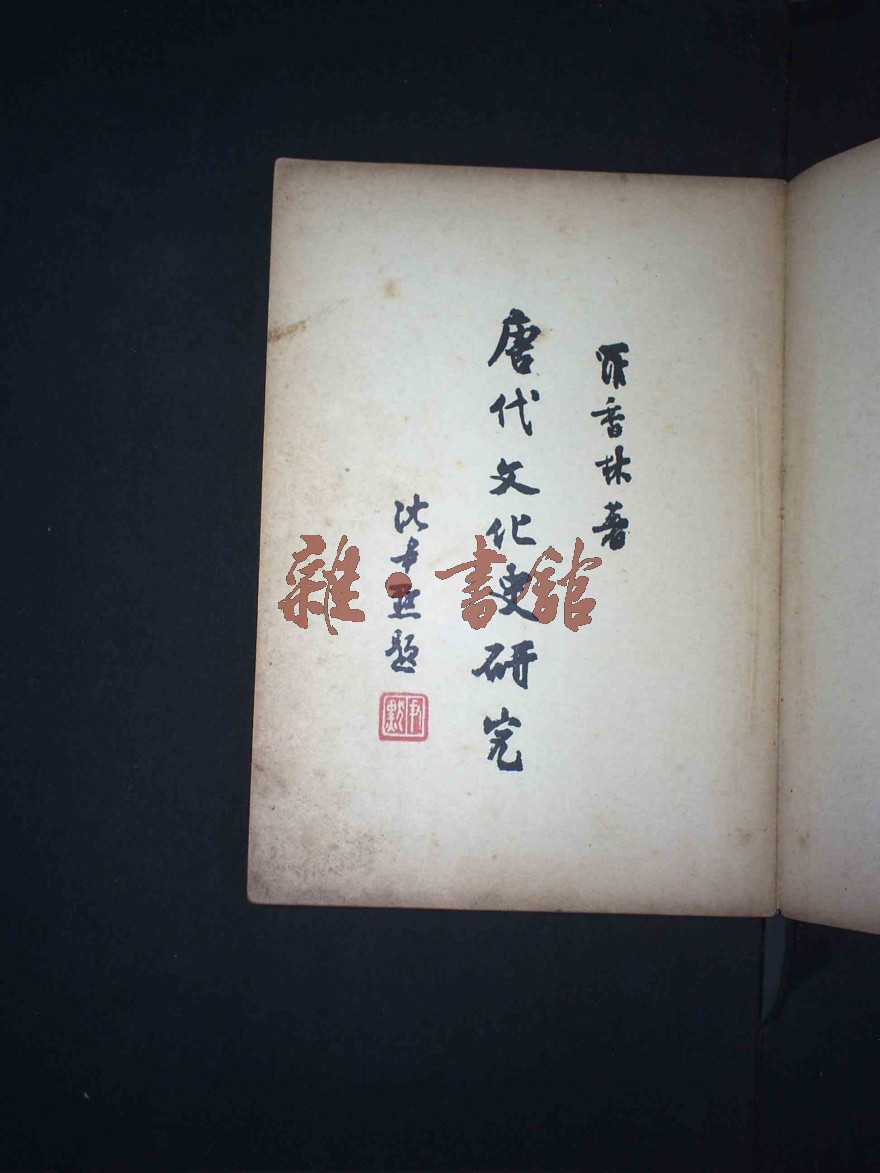 羅香林著
唐代文化史研究
沈尹默題
尹默
雜·書館